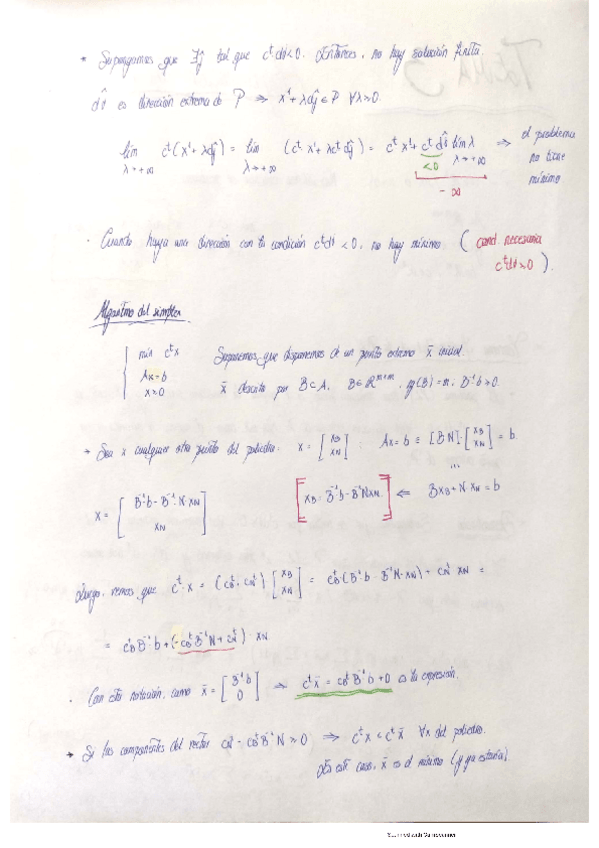 * Supongamos que ∃ĵ tal que cᵗdʲ<0. Entonces, no hay solución finita.
dʲ es dirección extrema de P ⇒ x¹+λdʲ ∈ P ∀λ>0.
lím λ→+∞ cᵗ(x¹+λdʲ) = lím λ→+∞ (cᵗx¹+λcᵗdʲ) = cᵗx¹+cᵗdʲ lím λ λ→+∞ ⇒ el problema no tiene mínimo
<0
-∞
· Cuando haya una dirección con la condición cᵗdʲ<0, no hay mínimo. (cond. necesaria
cᵗdʲ≥0).
Algoritmo del simplex
min cᵗx Suponemos que disponemos de un punto extremo x̄ inicial.
Ax=b
x≥0 x̄ descrito por B⊂A, B∈ℝᵐˣᵐ, rg(B)=m, B⁻¹b≥0.
→ Sea x cualquier otro punto del poliedro: x = [xB xN] . Ax=b ≡ [B N]·[xB xN] = b.
...
x = [B⁻¹b-B⁻¹NxN xN] [xB=B⁻¹b-B⁻¹NxN.] ⇐ BxB+N·xN=b
Luego, vemos que cᵗ·x = (cBᵗ, cNᵗ)[xB xN] = cBᵗ(B⁻¹b-B⁻¹N·xN)+cNᵗ xN =
= cBᵗB⁻¹b+(-cBᵗB⁻¹N+cNᵗ)·xN
· Con esta notación, como x̄ = [B⁻¹b 0] ⇒ cᵗx̄ = cBᵗB⁻¹b+0 la expresión.
→ Si las componentes del vector cNᵗ-cBᵗB⁻¹N≥0 ⇒ cᵗx≤cᵗx̄ ∀x del poliedro.
En este caso, x̄ es el mínimo (y ya estaría).
Scanned with CamScanner